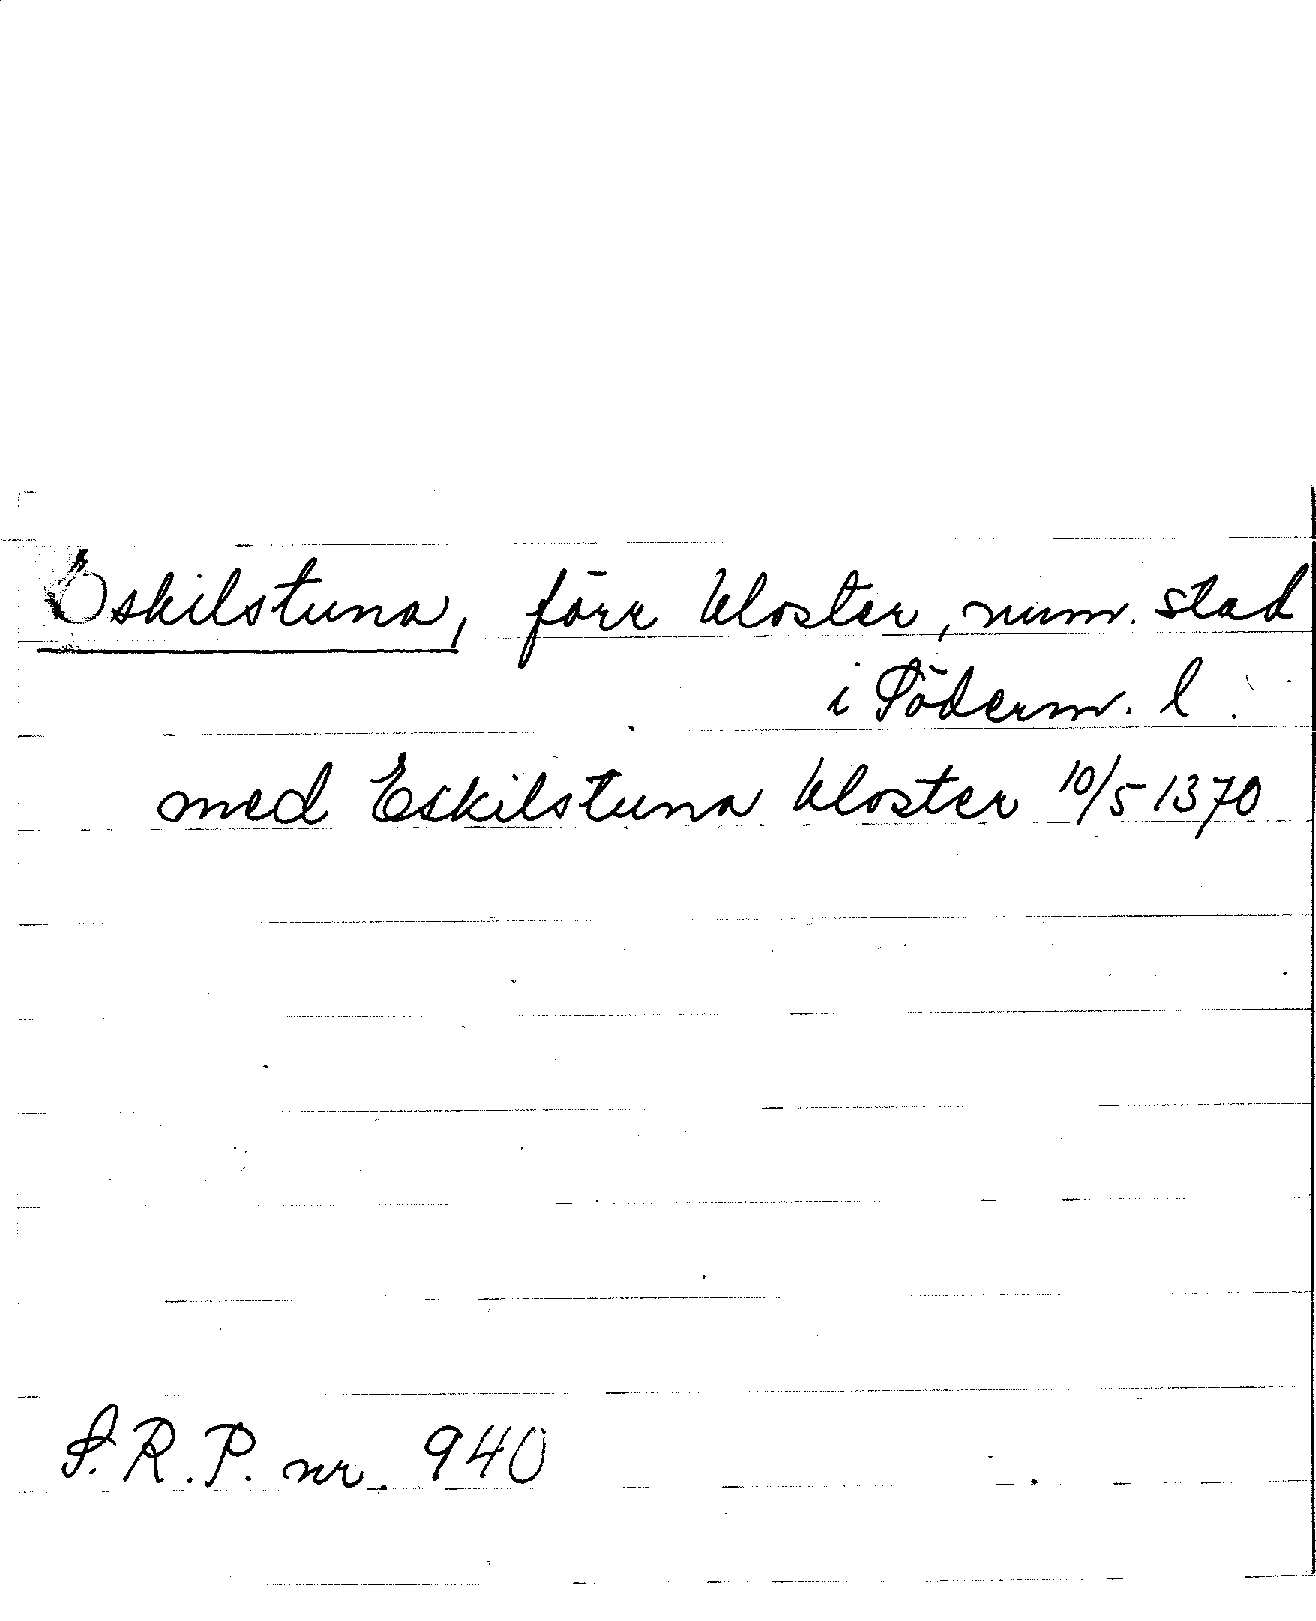 Eskilstuna, förr kloster, num. stad
i Söderm. l.
med Eskilstuna kloster 10/5 1370
S.R.P. nr. 940